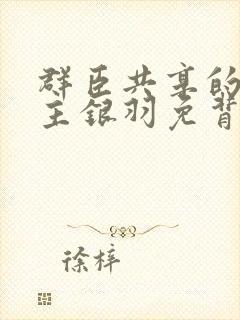 群臣共享的
王银羽免背
徐梓